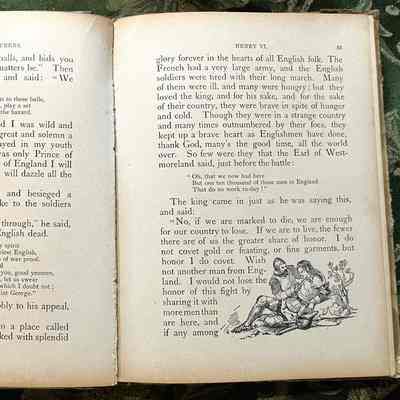 balls, and bids you
matters be." Then
and said: "We
to these balls,
play a set
the hazard.
d I was wild and
great and solemn a
ayed in my youth
was only Prince of
of England I will
will dazzle all the
and besieged a
ke to the soldiers
through," he said,
English dead.
y spirit
iest English,
of war proof.
d
you, good yeomen,
let us swear
which I doubt not
int George."
obly to his appeal,
n a place called
ked with splendid
HENRY VI.
glory forever in the hearts of all English folk. The
French had a very large army, and the English
soldiers were tired with their long march. Many
of them were ill, and many were hungry; but they
loved the king, and for his sake, and for the sake
of their country, they were brave in spite of hunger
and cold. Though they were in a strange country
and many times outnumbered by their foes, they
kept up a brave heart as Englishmen have done,
thank God, many's the good time, all the world
over. So few were they that the Earl of West-
moreland said, just before the battle:
"Oh, that we now had here
But one ten thousand of those men in England
That do no work to-day!"
The king came in just as he was saying this,
and said:
"No, if we are marked to die, we are enough
for our country to lose. If we are to live, the fewer
there are of us the greater share of honor. I do
not covet gold or feasting, or fine garments, but
honor I do covet. Wish
not another man from Eng-
land. I would not lose the
honor of this fight by
sharing it with
more men than
are here, and
if any among